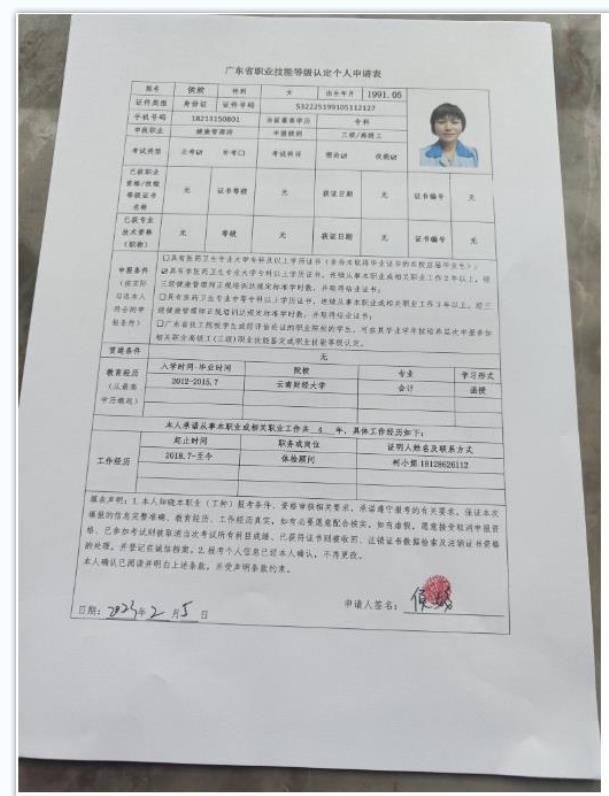 广东省职业技能等级认定个人申请表
姓名 侯姣 性别 女 出生年月 1991.05
证件类型 身份证 证件号码 532225199105112127
手机号码 18213150801 当前最高学历 专科
申报职业 健康管理师 申报级别 三级/高级工
考试类型 正考☑ 补考☐ 考试科目 理论☑ 技能☑
已获职业资格/技能等级证书名称 无 证书等级 无 获证日期 无 证书编号 无
已获专业技术资格(职称) 无 等级 无 获证日期 无 证书编号 无
申报条件(按实际勾选本人符合的申报条件)
☐具有医药卫生专业大学专科及以上学历证书(含尚未取得毕业证书的在校应届毕业生);
☑具有非医药卫生专业大学专科以上学历证书,连续从事本职业或相关职业工作2年以上,经
三级健康管理师正规培训达规定标准学时数,并取得结业证书;
☐具有医药卫生专业中等专科以上学历证书,连续从事本职业或相关职业工作3年以上,经三
级健康管理师正规培训达规定标准学时数,并取得结业证书;
☐广东省技工院校学生或经评估论证的职业院校的学生,可在其毕业学年按培养层次申报参加
相关职业高级工(三级)职业技能鉴定或职业技能等级认定。
贯通条件 无
教育经历(从最高学历填起) 入学时间-毕业时间 院校 专业 学习形式
2012-2015.7 云南财经大学 会计 函授
本人承诺从事本职业或相关职业工作共 4 年,具体工作经历如下:
工作经历 起止时间 职务或岗位 证明人姓名及联系方式
2018.7-至今 体检顾问 柯小娜 18128626112
填表声明:1.本人知晓本职业(工种)报考条件、资格审核相关要求,承诺遵守报考的有关要求,保证本次
填报的信息完整准确,教育经历、工作经历真实,如有必要愿意配合核实。如有虚假,愿意接受取消申报资
格、已参加考试则被取消当次考试所有科目成绩、已获得证书则被收回、注销证书数据检索及注销证书资格
的处理,并登记在诚信档案。2.报考个人信息已经本人确认,不再更改。
本人确认已阅读并明白上述条款,并受声明条款约束。
日期: 2023年 2 月 5 日
申请人签名: 侯姣